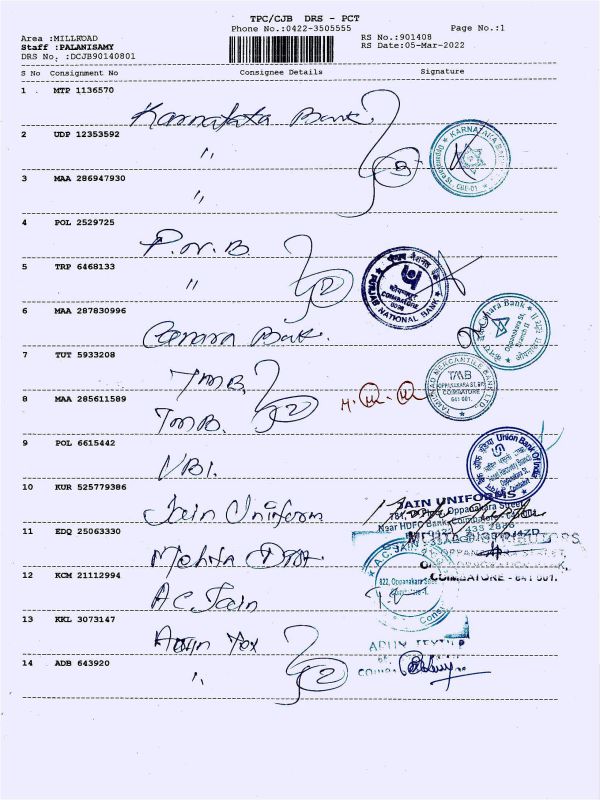 TPC/CJB DRS - PCT
Phone No.:0422-3505555 Page No.:1
Area :MILLROAD RS No.:901408
Staff :PALANISAMY RS Date:05-Mar-2022
DRS No. :DCJB90140801
S No Consignment No Consignee Details Signature
1 . MTP 1136570
Karnataka Bank
2 UDP 12353592
〃
KARNATAKA BANK
3 MAA 286947930
〃
4 POL 2529725
P.N.B
5 TRP 6468133
〃 2
पंजाब नैशनल बैंक
COIMBATORE
PUNJAB NATIONAL BANK
6 MAA 287830996
Canara Bank.
Canara Bank
Oppanakara St.
Branch II
7 TUT 5933208
TMB
8 MAA 285611589
TMB 2
TAMILNAD MERCANTILE BANK LTD.
TMB
OPPANAKARA ST. BR.
COIMBATORE
641 001.
9 POL 6615442
UBI.
Union Bank Of India
10 KUR 525779386
Jain Uniform
JAIN UNIFORMS
Oppanakara Street
Near HDFC Bank, Coimbatore
11 EDQ 25063330
Mehta
12 KCM 21112994
A C Jain
A.C. JAIN
822, Oppanakara Street
COIMBATORE - 641 001.
13 KKL 3073147
Tex
14 ADB 643920
〃 2